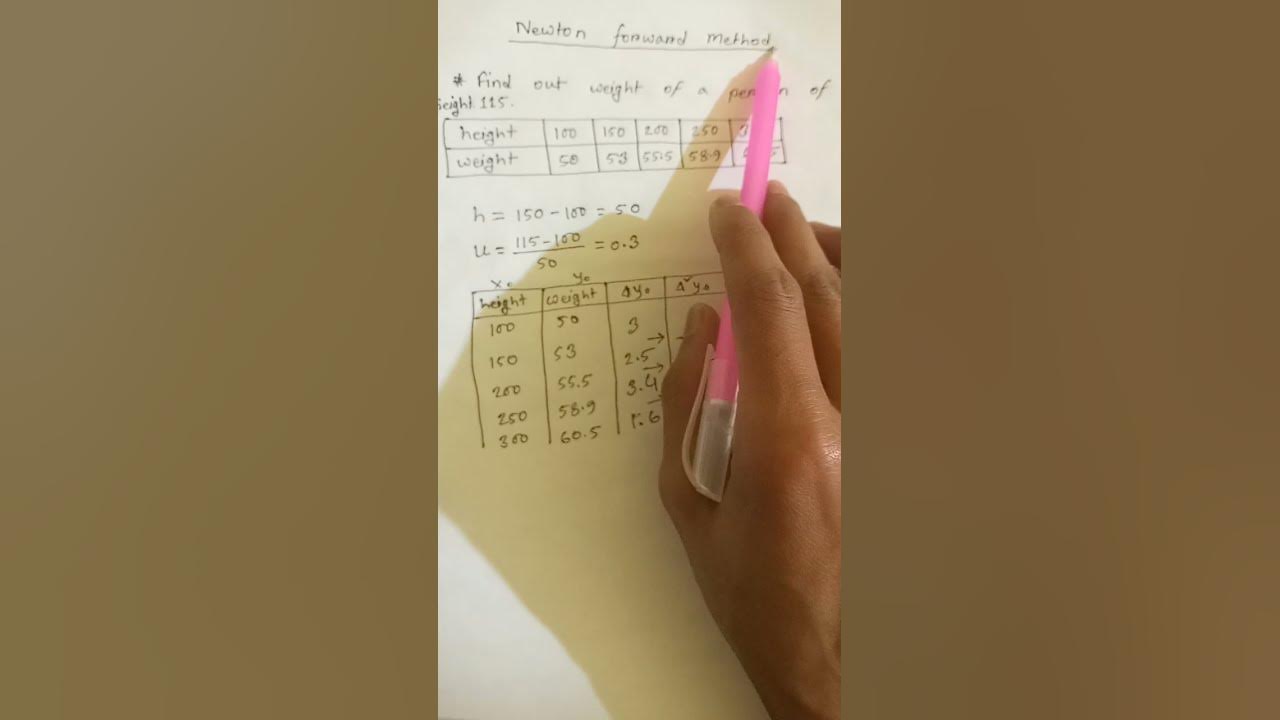 Newton forward Method
* Find out weight of a of
height 115.
height 100 150 200 250
weight 50 53 55.5 58.9
h = 150 - 100 = 50
u = 115 - 100 / 50 = 0.3
x₀ y₀
height weight Δy₀ Δ²y₀
100 50 3
150 53 2.5
200 55.5 3.4
250 58.9 1.6
300 60.5